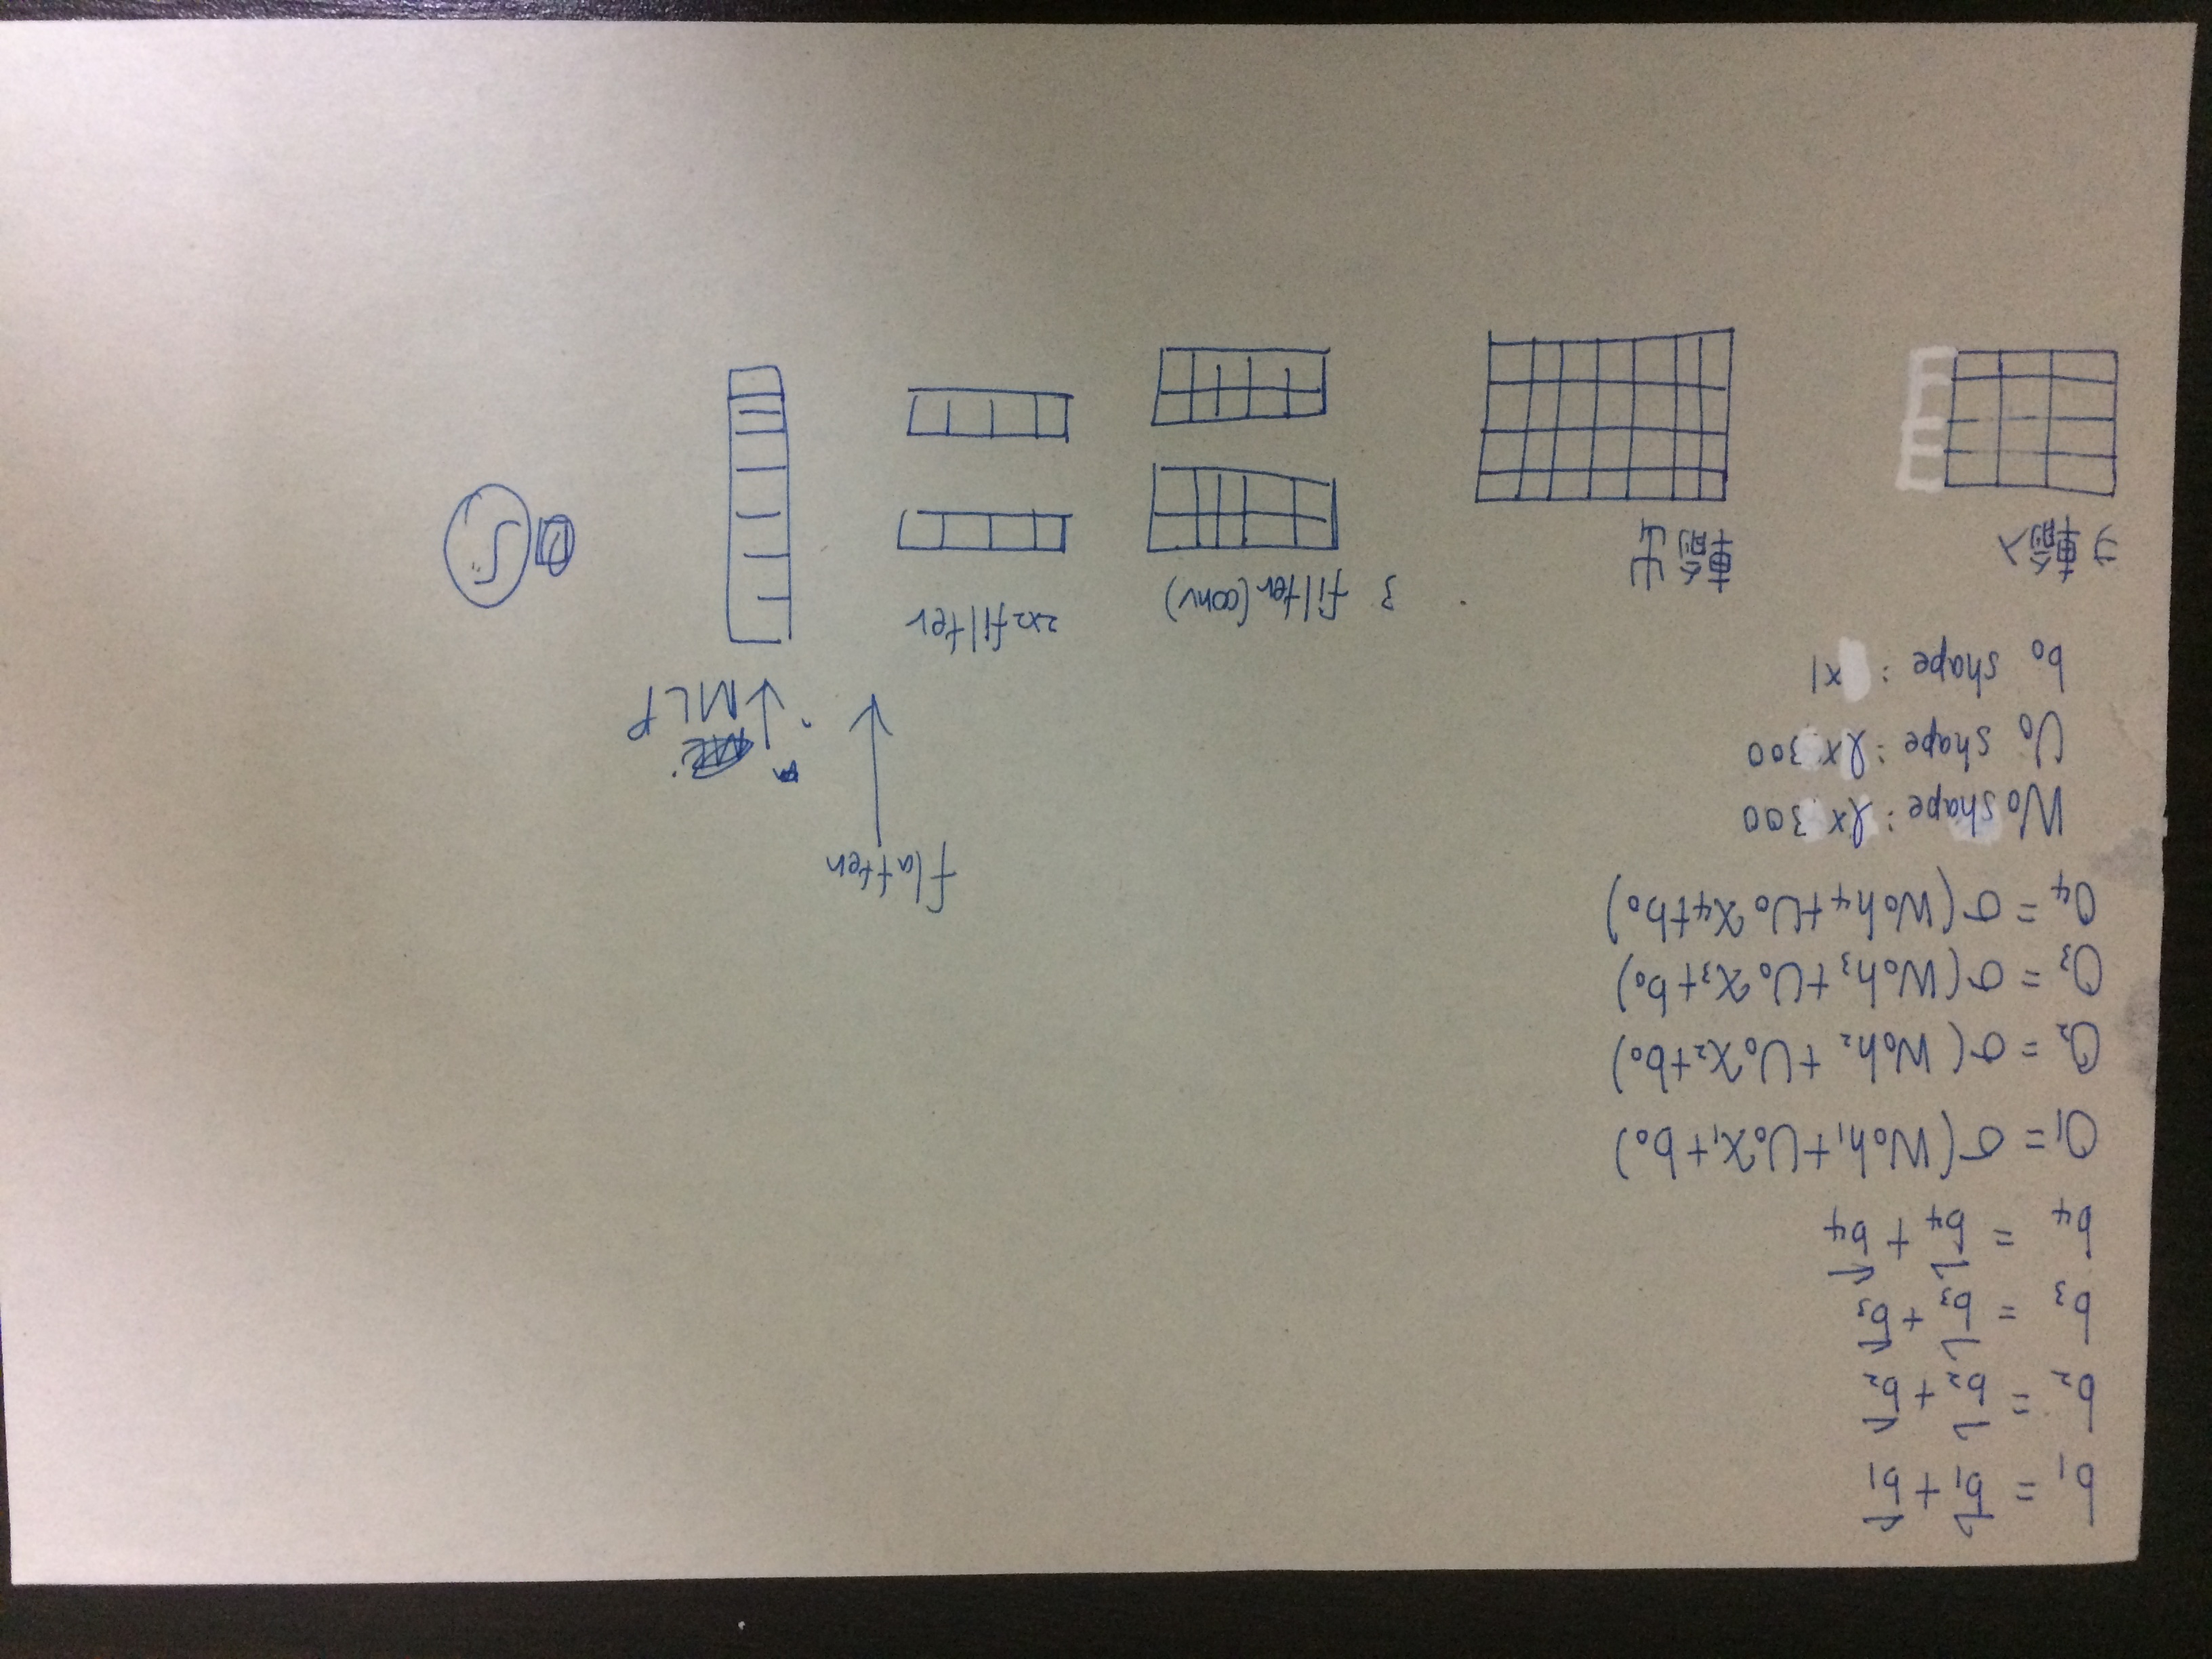 b₁ = b⃗₁ + b⃖₁
b₂ = b⃗₂ + b⃖₂
b₃ = b⃗₃ + b⃖₃
b₄ = b⃗₄ + b⃖₄
O₁ = σ(W₀h₁+U₀x₁+b₀)
O₂ = σ(W₀h₂+U₀x₂+b₀)
O₃ = σ(W₀h₃+U₀x₃+b₀)
O₄ = σ(W₀h₄+U₀x₄+b₀)
W₀ shape: l×300
U₀ shape: l×300
b₀ shape: ×1
flatten
MLP
⇒輸入
輸出
3 filter(conv)
2×2 filter